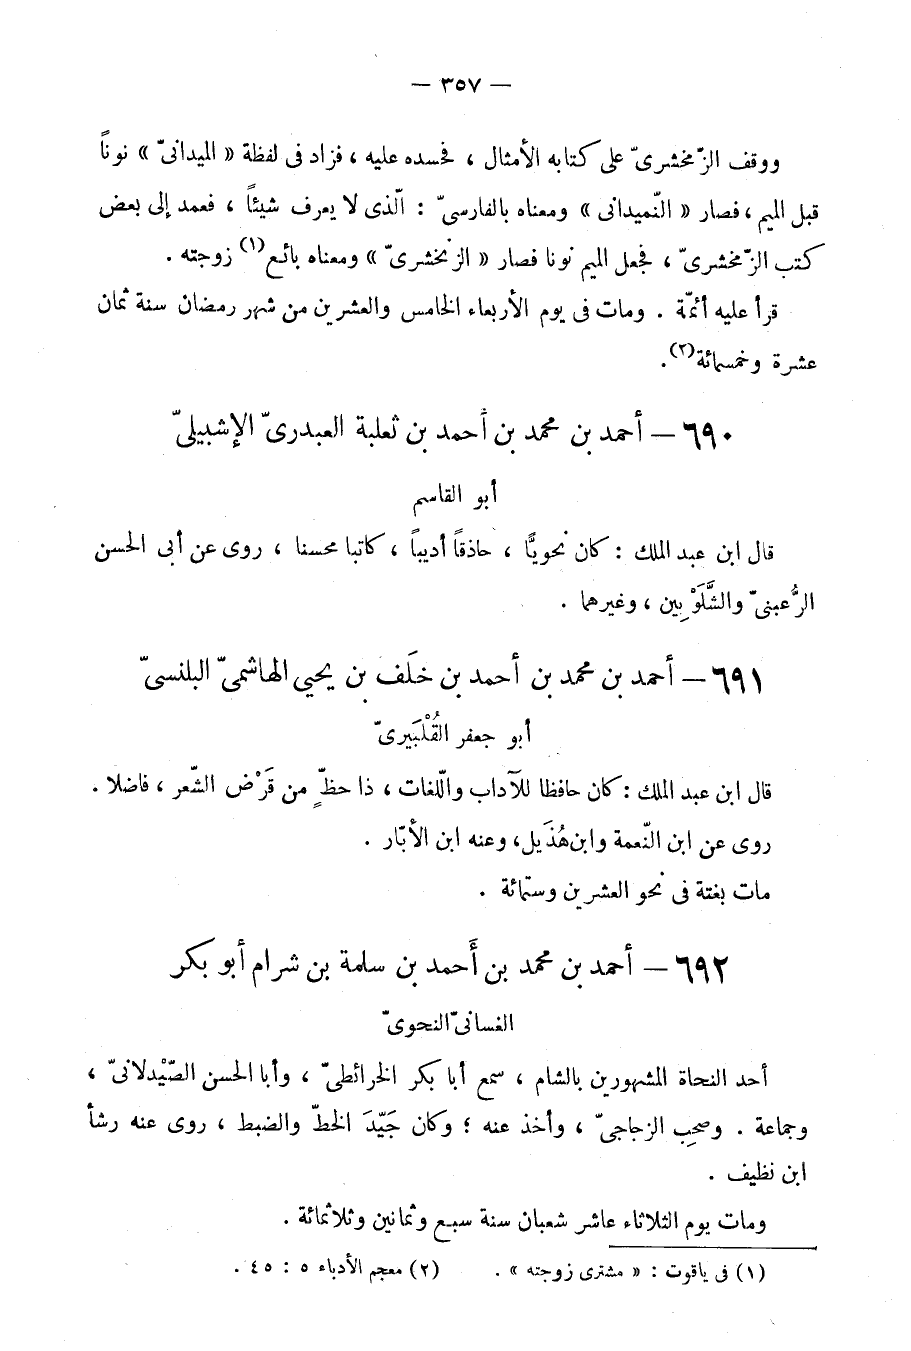 — ٣٥٧ —
ووقف الزّمخشرىّ على كتابه الأمثال ، فحسده عليه ، فزاد فى لفظة « الميدانىّ » نوناً
قبل الميم ، فصار « النّميدانى » ومعناه بالفارسىّ : الّذى لا يعرف شيئاً ، فعمد إلى بعض
كتب الزّمخشرىّ ، فجعل الميم نونا فصار « الزنخشرىّ » ومعناه بائع(١) زوجته .
قرأ عليه أئمّة . ومات فى يوم الأربعاء الخامس والعشرين من شهر رمضان سنة ثمان
عشرة وخمسمائة(٢).
٦٩٠ — أحمد بن محمد بن أحمد بن ثعلبة العبدرىّ الإشبيلىّ
أبو القاسم
قال ابن عبد الملك : كان نحويًّا ، حاذقاً أديباً ، كاتبا محسنا ، روى عن أبى الحسن
الرُّعبنىّ والشَّلَوْبين ، وغيرهما .
٦٩١ — أحمد بن محمد بن أحمد بن خلَف بن يحيي الهاشمىّ البلنسىّ
أبو جعفر القُلْبَيرىّ
قال ابن عبد الملك : كان حافظا للآداب واللّغات ، ذا حظّ من قَرْض الشّعر ، فاضلا .
روى عن ابن النّعمة وابن هُذَيل، وعنه ابن الأبّار .
مات بغتة فى نحو العشرين وستمّائة .
٦٩٢ — أحمد بن محمد بن أَحمد بن سلمة بن شرام أبو بكر
الغسانىّ النحوىّ
أحد النحاة المشهورين بالشام ، سمع أبا بكر الخرائطىّ ، وأبا الحسن الصّيْدلانىّ ،
وجماعة . وصحِب الزجاجىّ ، وأخذ عنه ؛ وكان جَيّدَ الخطّ والضبط ، روى عنه رشأ
ابن نظيف .
ومات يوم الثلاثاء عاشر شعبان سنة سبع وثمانين وثلاثمائة .
(١) فى ياقوت : « مشترى زوجته » . (٢) معجم الأدباء ٥ : ٤٥ .